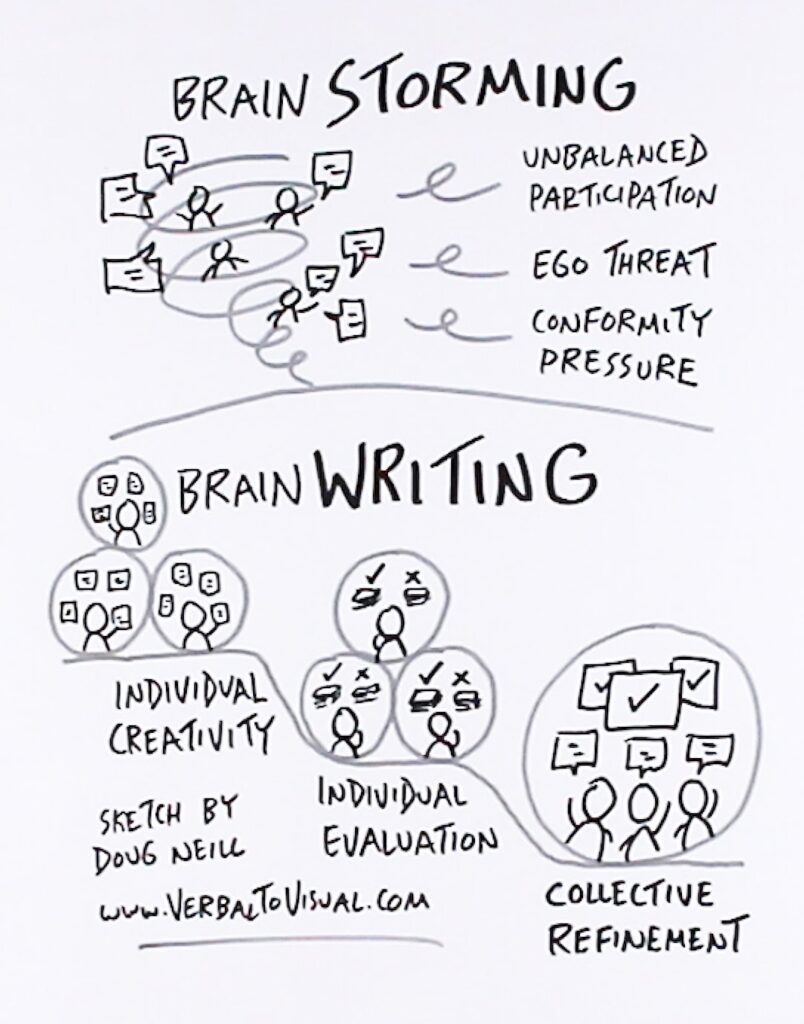 BRAIN STORMING
UNBALANCED
PARTICIPATION
EGO THREAT
CONFORMITY
PRESSURE
BRAIN WRITING
INDIVIDUAL
CREATIVITY
INDIVIDUAL
EVALUATION
COLLECTIVE
REFINEMENT
SKETCH BY
DOUG NEILL
www.VERBALTOVISUAL.COM